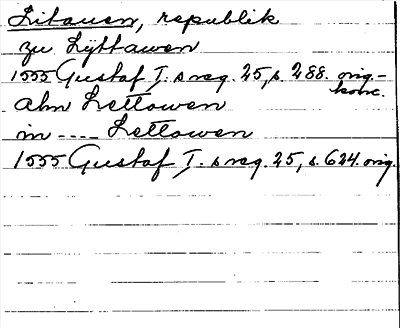 Litauen, republik
zu Lÿttawen
1555 Gustaf I. s reg. 25, s. 288. orig.-
konc.
ahn Lettowen
in ---- Lettowen
1555 Gustaf I. s reg. 25, s. 624. orig.